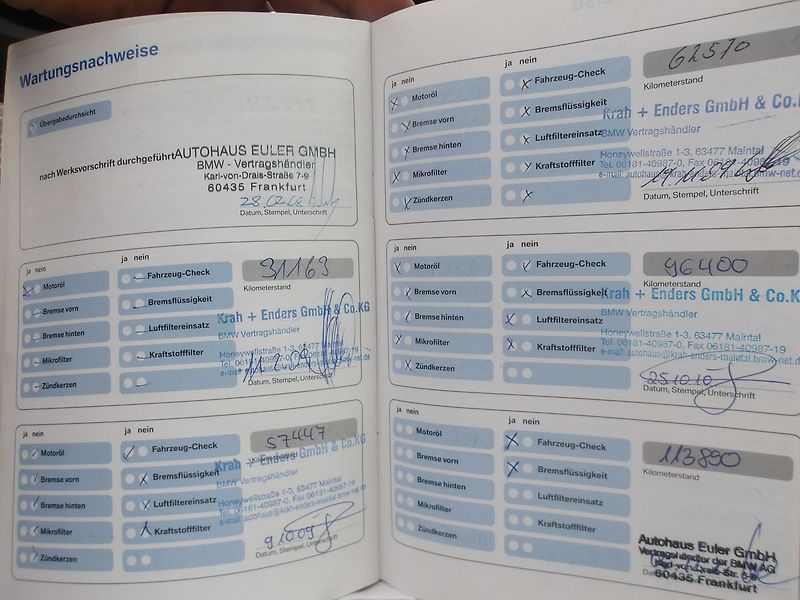 Wartungsnachweise
Übergabedurchsicht
nach Werksvorschrift durchgeführt
AUTOHAUS EULER GMBH
BMW - Vertragshändler
Karl-von-Drais-Straße 7-9
60435 Frankfurt
Datum, Stempel, Unterschrift
ja nein
ja nein
Motoröl
Bremse vorn
Bremse hinten
Mikrofilter
Zündkerzen
Fahrzeug-Check
Bremsflüssigkeit
Luftfiltereinsatz
Kraftstofffilter
31163
Kilometerstand
Krah + Enders GmbH & Co.KG
BMW Vertragshändler
Honeywellstraße 1-3, 63477 Maintal
Tel. 06181-40987-0, Fax 06181-40987-19
Datum, Stempel, Unterschrift
ja nein
ja nein
Motoröl
Bremse vorn
Bremse hinten
Mikrofilter
Zündkerzen
Fahrzeug-Check
Bremsflüssigkeit
Luftfiltereinsatz
Kraftstofffilter
57447
Kilometerstand
Krah + Enders GmbH & Co.KG
BMW Vertragshändler
Honeywellstraße 1-3, 63477 Maintal
Tel. 06181-40987-0, Fax 06181-40987-19
Datum, Stempel, Unterschrift
ja nein
ja nein
Motoröl
Bremse vorn
Bremse hinten
Mikrofilter
Zündkerzen
Fahrzeug-Check
Bremsflüssigkeit
Luftfiltereinsatz
Kraftstofffilter
62570
Kilometerstand
Krah + Enders GmbH & Co.KG
BMW Vertragshändler
Honeywellstraße 1-3, 63477 Maintal
Tel. 06181-40987-0, Fax 06181-40987-19
Datum, Stempel, Unterschrift
ja nein
ja nein
Motoröl
Bremse vorn
Bremse hinten
Mikrofilter
Zündkerzen
Fahrzeug-Check
Bremsflüssigkeit
Luftfiltereinsatz
Kraftstofffilter
96400
Kilometerstand
Krah + Enders GmbH & Co.KG
BMW Vertragshändler
Honeywellstraße 1-3, 63477 Maintal
Tel. 06181-40987-0, Fax 06181-40987-19
e-mail: autohaus@krah-enders-maintal.bmw-net.de
25.10.10
Datum, Stempel, Unterschrift
ja nein
ja nein
Motoröl
Bremse vorn
Bremse hinten
Mikrofilter
Zündkerzen
Fahrzeug-Check
Bremsflüssigkeit
Luftfiltereinsatz
Kraftstofffilter
113890
Kilometerstand
Autohaus Euler GmbH
Vertragshändler der BMW AG
Karl-von-Drais-Str. 7-9
60435 Frankfurt